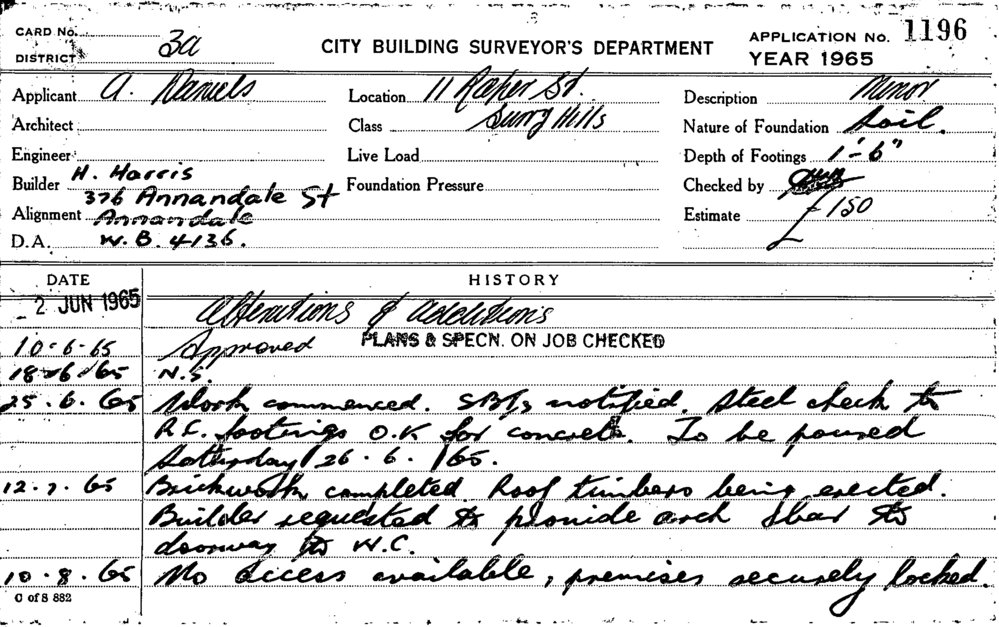 CARD No.
DISTRICT 3a
CITY BUILDING SURVEYOR'S DEPARTMENT
APPLICATION No. 1196
YEAR 1965
Applicant A. Daniels
Location 11 Raper St.
Description Minor
Architect
Class Surry Hills
Nature of Foundation Soil.
Engineer
Live Load
Depth of Footings 1'-6"
Builder H. Harris
376 Annandale St
Foundation Pressure
Checked by
Alignment Annandale
Estimate £150
D.A. W.B. 4136.
DATE HISTORY
2 JUN 1965 Alterations & additions
10-6-65 Approved PLANS & SPECN. ON JOB CHECKED
18-6-65 N.S.
25.6.65 Work commenced. notified. Steel check to
R.C. footings O.K for concrete. To be poured
Saturday 26.6.65.
12.7.65 Brickwork completed. Roof timbers being erected.
Builder requested to provide arch bar to
doorway to W.C.
10.8.65 No access available, premises securely locked.
C of S 882